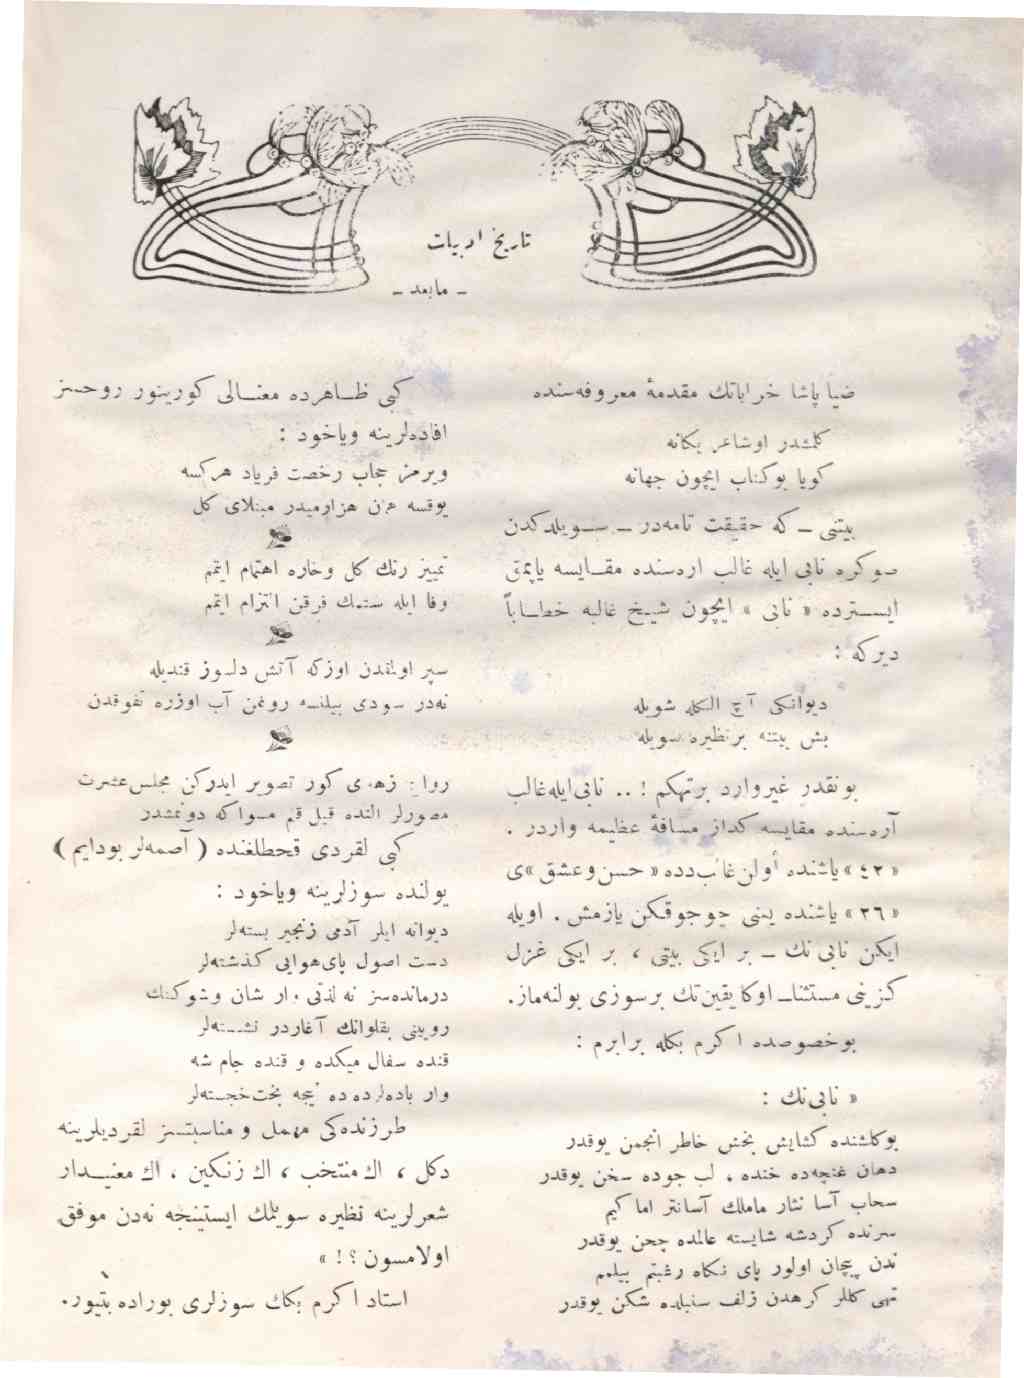 تاریخ ادبیات
ـ مابعد ـ
ضیا پاشا خراباتك مقدمهٔ معروفه‌سنده
كلمشدر اوشاعر یكانه
كویا بوكتاب ایچون جهانه
بیتنی ــ كه حقیقت تامه‌در ــ سویلدكدن
صوكره نابی ایله غالب اره‌سنده مقایسه یاپمق
ایسترده « نابی » ایچون شیخ غالبه خطاباً
دیركه :
دیوانكی آچ الكله شویله
بش بیتنه برنظیره سویله
بونقدر غیروارد برتهكم ! .. نابی‌ایله‌غالب
آره‌سنده مقایسه كداز مسافهٔ عظیمه واردر .
«٤٢» یاشنده أولن غالب‌دده « حسن‌وعشق »ی
«٢٦» یاشنده یعنی چوجوقكن یازمش . اویله
ایكن نابی‌نك ــ بر ایكی بیتی ، بر ایكی غزل
كزینی مستثنا ــ اوكا یقین‌تك برسوزی بولنه‌ماز.
بوخصوصده اكرم بكله برابرم :
« نابی‌نك :
بوكلشنده كشایش بخش خاطر انجمن یوقدر
دهان غنچه‌ده خنده ، لب جوده سخن یوقدر
سحاب آسا نثار ماملك آسانتر اما كیم
سرنده كردشه شایسته عالمده چمن یوقدر
ندن پیچان اولور پای نكاه رغبتم بیلمم
تهی كللر كرهدن زلف سنبلده شكن یوقدر
كبی ظاهرده معنالی كورینور روحسز
افاده‌لرینه ویاخود :
ویرمز حجاب رخصت فریاد هركسه
یوقسه هزارمیدر مبتلای كل
تمییز رنك كل وخاره اهتمام ایتمم
وفا ایله ستمك فرقن التزام ایتمم
سپر اولمقدن اوزكه آتش دلسوز قندیله
نه‌در سودی بیلنمه روغن آب اوزره تفوقدن
زهدی كور تصویر ایدركن مجلس‌عشرت
مصورلر النده قیل قلم مسواكه دونمشدر
كبی لقردی قحطلغنده ( آصمه‌لر بودایم )
یولنده سوزلرینه ویاخود :
دیوانه ایلر آدمی زنجیر بسته‌لر
دست اصول پای‌هوایی كذشته‌لر
درمانده‌سز نه لذتی وار شان وشوكتك
رویینی بقلوانك آغاردر نشسته‌لر
قنده سفال میكده و قنده جام شه
وار باده‌لرده ده نیجه بخت‌خجسته‌لر
طرزنده‌كی مهمل و مناسبتسز لقردیلرینه
دكل ، اك منتخب ، اك زنكین ، اك معنیدار
شعرلرینه نظیره سویلمك ایستینجه نه‌دن موفق
اولامسون ؟ ! »
استاد اكرم بكك سوزلری بوراده بتیور.